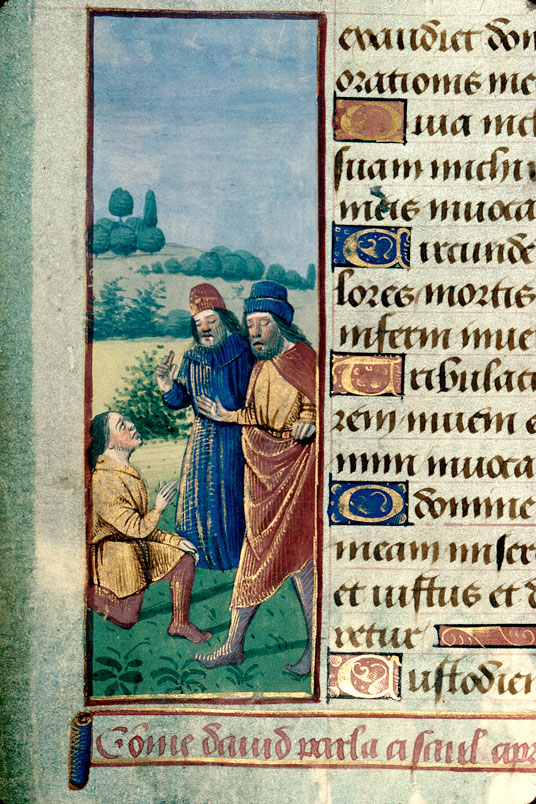 exaudiet dom
orationis me
Quia incl
suam michi
meis inuoca
Circunde
lores mortis
inferni inue
Tribulaci
rem inueni e
mini inuoca
O domine
meam miser
et iustus et d
retur
Custodien
Come dauid parla a saul apr